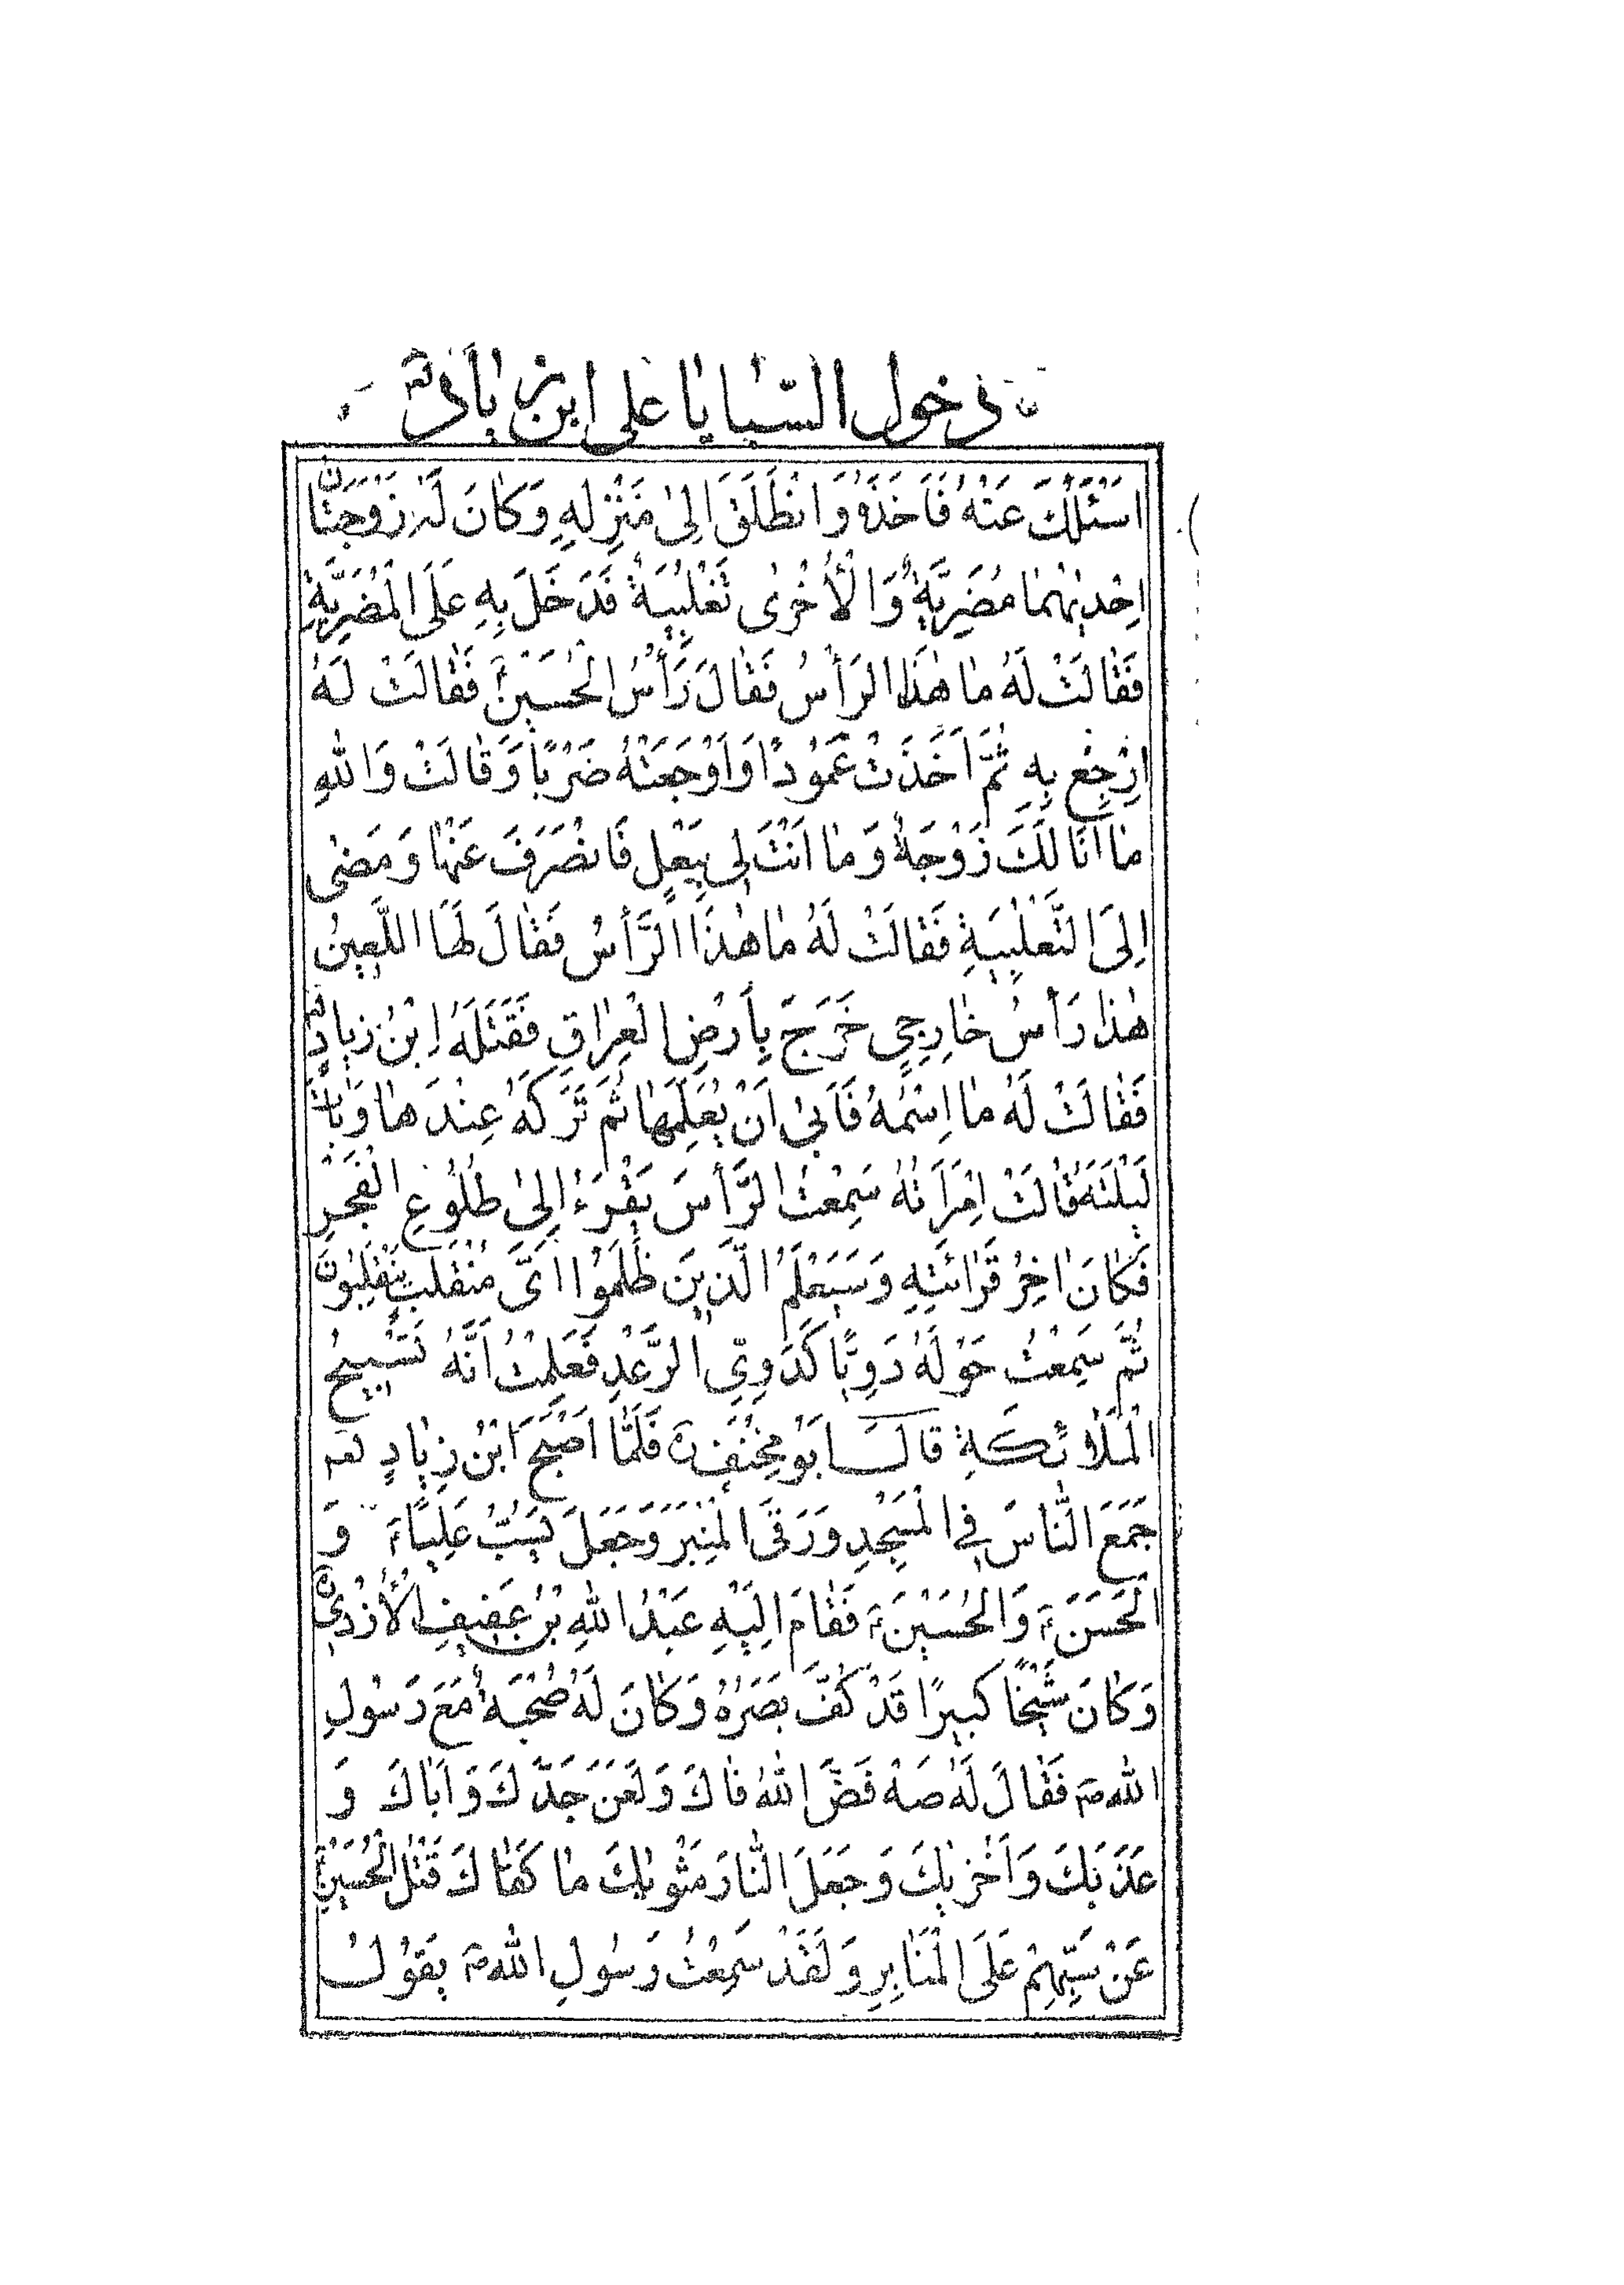 دخول السّبايا على ابن زياد لعنه
اَسْئَلَكَ عَنْهُ فَاَخَذَهُ وَانْطَلَقَ اِلىٰ مَنْزِلِهِ وَكانَ لَهُ زَوْجَتانِ
اِحْديٰهُما مُضَرِيَّةٌ وَالْأُخْرىٰ تَغْلِبِيَةٌ فَدَخَلَ بِهِ عَلَى الْمُضَرِيَّةِ
فَقالَتْ لَهُ ما هٰذَا الرَأْسُ فَقالَ رَأْسُ الْحُسَيْنِ؏ فَقالَتْ لَهُ
اِرْجِعْ بِهِ ثُمَّ اَخَذَتْ عَمُودًا وَاَوْجَعَتْهُ ضَرْبًا وَقالَتْ وَاللهِ
ما اَنَا لَكَ زَوْجَةٌ وَما اَنْتَ لِي بِبَعْلٍ فَانْصَرَفَ عَنْها وَمَضىٰ
اِلَى التَّغْلِبِيَةِ فَقالَتْ لَهُ ما هٰذَا الرَّأْسُ فَقالَ لَهَا اللَّعِينُ
هٰذا رَأْسُ خارِجِيٍ خَرَجَ بِأَرْضِ الْعِراقِ فَقَتَلَهُ ابْنُ زِيادٍ لعنه
فَقالَتْ لَهُ ما اِسْمُهُ فَاَبىٰ اَنْ يُعْلِمَها ثُمَّ تَرَكَهُ عِنْدَها وَباتَ
لَيْلَتَهُ قالَتْ اِمْرَأَتُهُ سَمِعْتُ الرَّأْسَ يَقْرَءُ اِلىٰ طُلُوعِ الْفَجْرِ
فَكانَ اٰخِرُ قَرائَتِهِ وَسَيَعْلَمُ الَّذِينَ ظَلَمُوا اَىَّ مُنْقَلَبٍ يَنْقَلِبُونَ
ثُمَّ سَمِعْتُ حَوْلَهُ دَوِيًّا كَدَوِيِّ الرَّعْدِ فَعَلِمْتُ اَنَّهُ تَسْبِيحُ
الْمَلائكَةِ قالَ اَبُو مِخْنَفٍ ره فَلَمّا اَصْبَحَ ابْنُ زِيادٍ لعنه
جَمَعَ النّاسَ فِي الْمَسْجِدِ وَرَقَى الْمِنْبَرَ وَجَعَلَ يَسُبُّ عَلِيًّا؏ وَ
الْحَسَنَ؏ وَالْحُسَيْنَ؏ فَقامَ اِلَيْهِ عَبْدُ اللهِ بْنُ عَفِيفِ الْأَزْدِيُّ ره
وَكانَ شَيْخًا كَبِيرًا قَدْ كُفَّ بَصَرُهُ وَكانَ لَهُ صُحْبَةٌ مَعَ رَسُولِ
اللهِ ص فَقالَ لَهُ صَهْ فَضَّ اللهُ فاكَ وَلَعَنَ جَدَّكَ وَاَباكَ وَ
عَذَّبَكَ وَاَخْزيٰكَ وَجَعَلَ النّارَ مَثْويٰكَ ما كَفاكَ قَتْلُ الْحُسَيْنِ؏
عَنْ سَبِّهِمْ عَلَى الْمَنابِرِ وَلَقَدْ سَمِعْتُ رَسُولِ اللهِ ص يَقُولُ